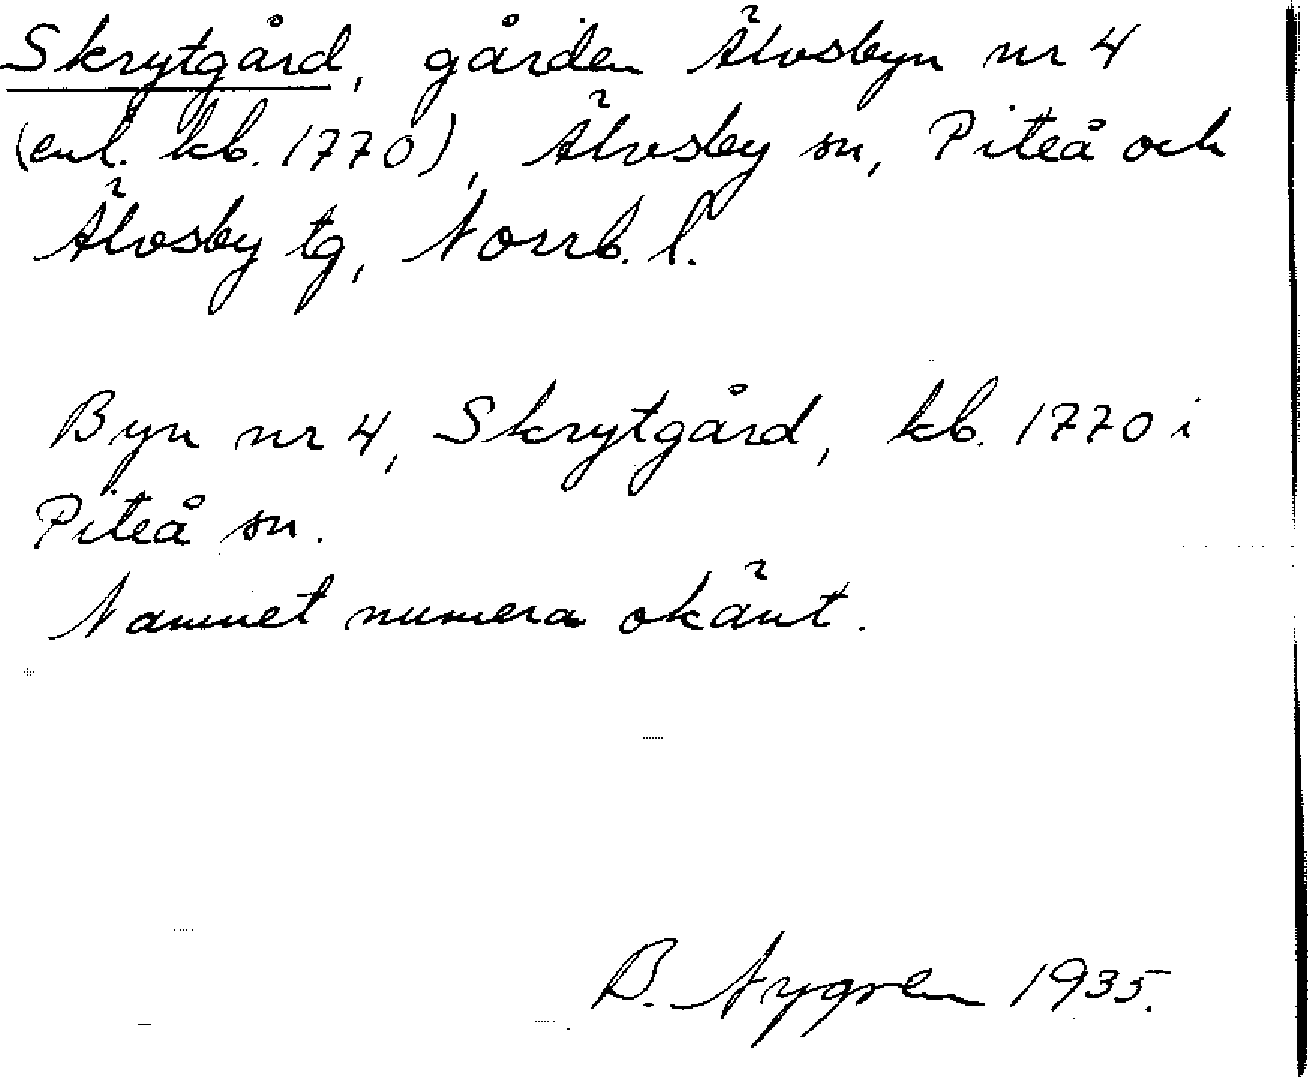 Skrytgård, gården Älvsbyn nr 4
(enl. kb. 1770), Älvsby sn, Piteå och
Älvsby tg, Norrb. l.
Byn nr 4, Skrytgård, kb. 1770 i
Piteå sn.
Namnet numera okänt.
B. Nygren 1935.